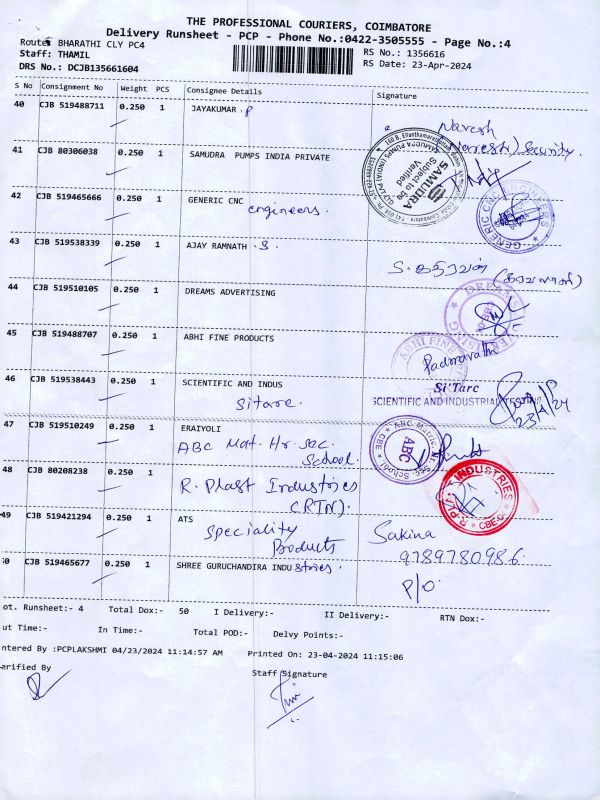 THE PROFESSIONAL COURIERS, COIMBATORE
Delivery Runsheet - PCP - Phone No.:0422-3505555 - Page No.:4
Route: BHARATHI CLY PC4
RS No.: 1356616
Staff: THAMIL
RS Date: 23-Apr-2024
DRS No.: DCJB135661604
S No Consignment No Weight PCS Consignee Details Signature
40 CJB 519488711 0.250 1 JAYAKUMAR.P Naresh
Security.
41 CJB 80306038 0.250 1 SAMUDRA PUMPS INDIA PRIVATE
SAMUDRA
Subject to be
Verified
42 CJB 519465666 0.250 1 GENERIC CNC
engineers.
GENERIC CNC ENGINEERS
43 CJB 519538339 0.250 1 AJAY RAMNATH .S.
S. கதிரவன் (காவலாளி)
44 CJB 519510105 0.250 1 DREAMS ADVERTISING
DREAMS
45 CJB 519488707 0.250 1 ABHI FINE PRODUCTS
ABHI FINE
Padmavathi
46 CJB 519538443 0.250 1 SCIENTIFIC AND INDUS
Sitarc.
Si'Tarc
SCIENTIFIC AND INDUSTRIAL TESTING
23/4/24
47 CJB 519510249 0.250 1 ERAIYOLI
ABC Mat. Hr. Sec.
School.
ABC
CBE
48 CJB 80208238 0.250 1
R. Plast Industries
(RTN).
INDUSTRIES
49 CJB 519421294 0.250 1 ATS
Speciality
Products
Sakina
9789780986
50 CJB 519465677 0.250 1 SHREE GURUCHANDIRA INDUstries.
P/O
ot. Runsheet:- 4 Total Dox:- 50 I Delivery:- II Delivery:- RTN Dox:-
ut Time:- In Time:- Total POD:- Delvy Points:-
ntered By :PCPLAKSHMI 04/23/2024 11:14:57 AM Printed On: 23-04-2024 11:15:06
arified By Staff Signature